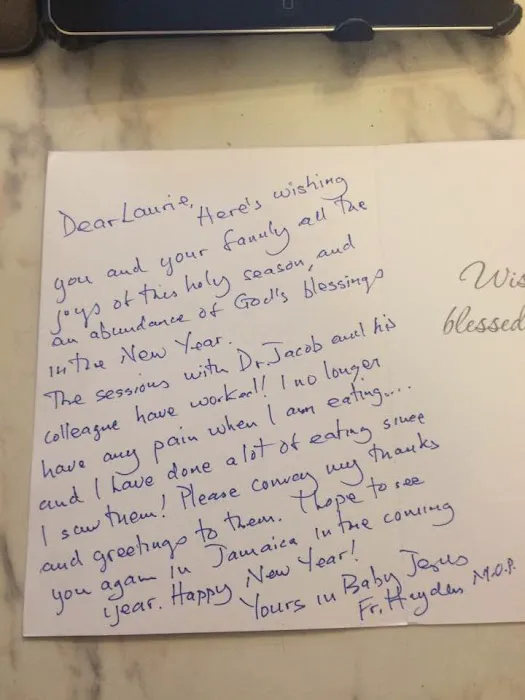 Dear Laurie, Here's wishing
you and your family all the
joys of this holy season, and
an abundance of God's blessings
in the New Year.
The sessions with Dr. Jacob and his
colleague have worked! I no longer
have any pain when I am eating....
and I have done a lot of eating since
I saw them! Please convey my thanks
and greetings to them. I hope to see
you again in Jamaica in the coming
year. Happy New Year!
Yours in Baby Jesus
Fr. Hayden M.O.P.
Wis
blessed